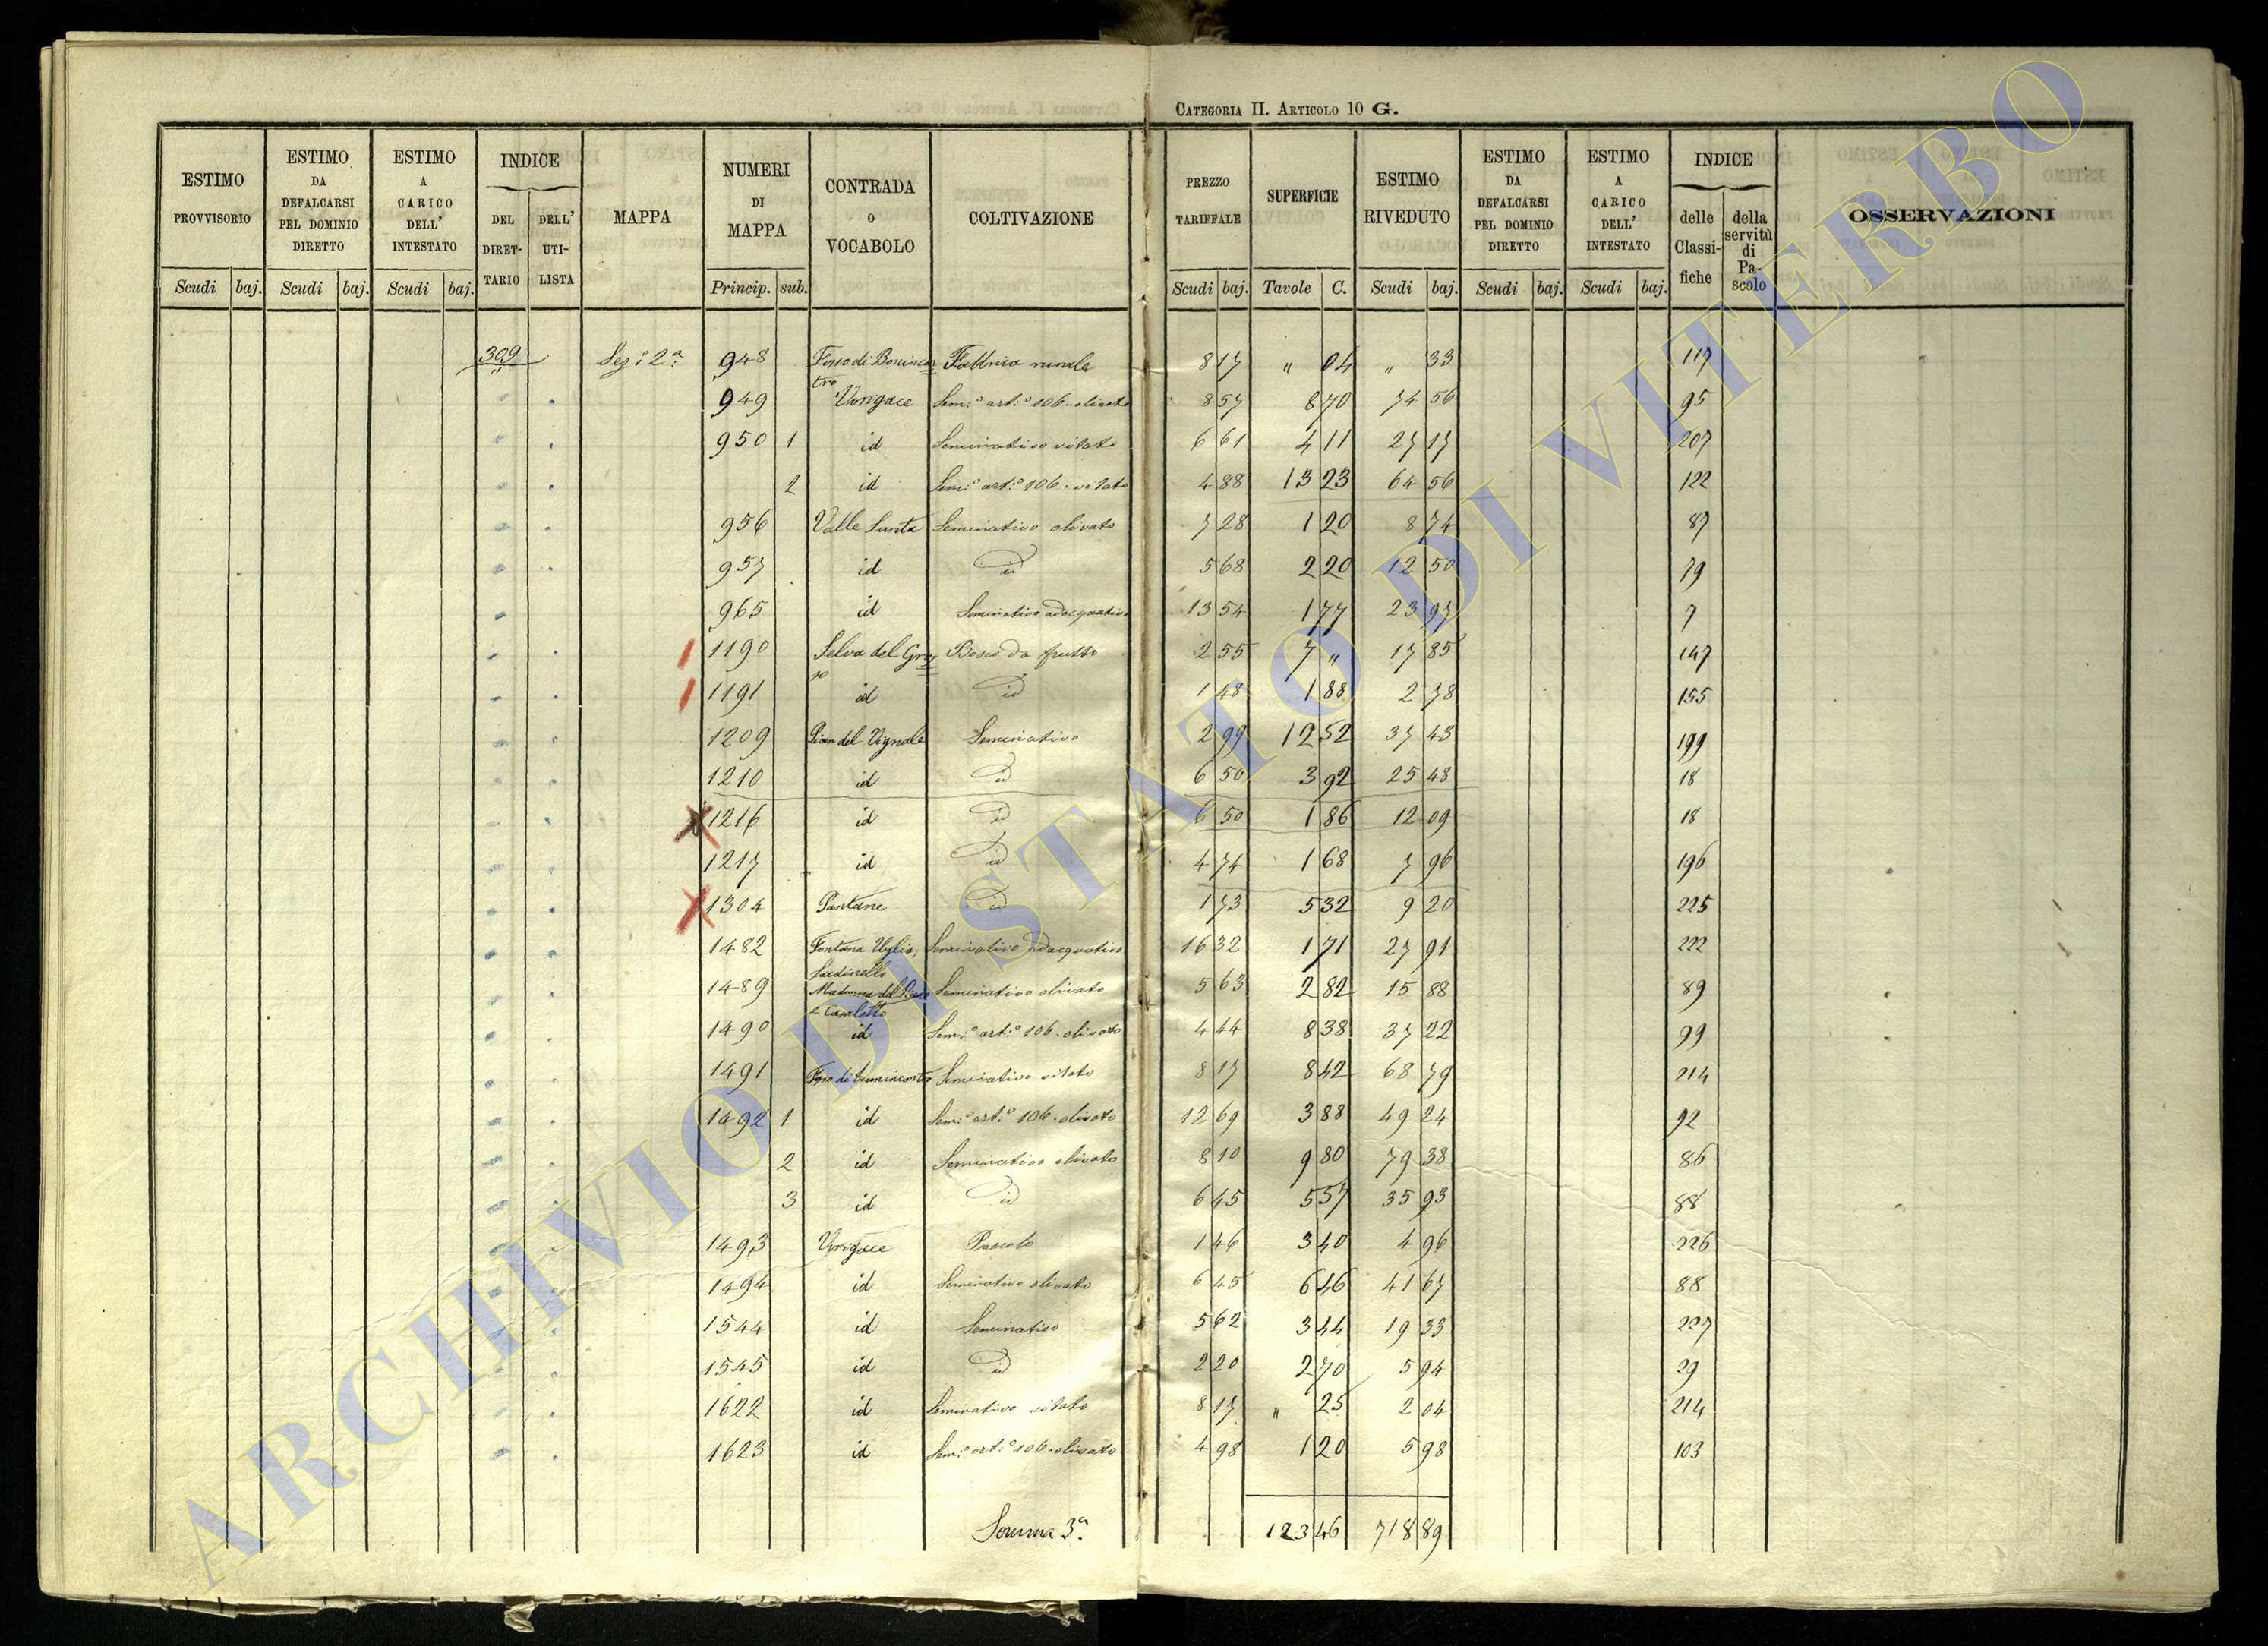 CATEGORIA II. ARTICOLO 10 G.
ESTIMO PROVVISORIO | ESTIMO DA DEFALCARSI PEL DOMINIO DIRETTO | ESTIMO A CARICO DELL' INTESTATO | INDICE DEL DIRETTARIO | DELL' UTILISTA | MAPPA | NUMERI DI MAPPA | CONTRADA O VOCABOLO | COLTIVAZIONE | PREZZO TARIFFALE | SUPERFICIE | ESTIMO RIVEDUTO | ESTIMO DA DEFALCARSI PEL DOMINIO DIRETTO | ESTIMO A CARICO DELL' INTESTATO | INDICE delle Classifiche | della servitù di Pascolo | OSSERVAZIONI
Scudi baj. | Scudi baj. | Scudi baj. | Princip. sub. | Scudi baj. | Tavole C. | Scudi baj. | Scudi baj. | Scudi baj.
309 Sez: 2ª 948 Fosso di Bonincontro Fabbrica rurale 8 17 " 04 " 33 117
949 Vorigace Sem:º art:º 106. olivato 8 57 8 70 74 56 95
950 1 id Seminativo vitato 6 61 4 11 27 17 207
2 id Sem:º art:º 106. vitato 4 88 13 23 64 56 122
956 Valle Santa Seminativo olivato 7 28 1 20 8 74 87
957 id id 5 68 2 20 12 50 79
965 id Seminativo adacquativo 13 54 1 77 23 97 7
1190 Selva del Bosco da frutto 2 55 7 " 17 85 147
1191 id id 1 48 1 88 2 78 155
1209 Pian del Vignale Seminativo 2 99 12 52 37 43 199
1210 id id 6 50 3 92 25 48 18
1216 id id 6 50 1 86 12 09 18
1217 id id 4 74 1 68 7 96 196
1304 Pantane id 1 73 5 32 9 20 225
1482 Fontana Seminativo adacquativo 16 32 1 71 27 91 222
1489 Madonna del Seminativo olivato 5 63 2 82 15 88 89
1490 id Sem:º art:º 106. olivato 4 44 8 38 37 22 99
1491 Fosso di Seminativo vitato 8 17 8 42 68 79 214
1492 1 id Sem:º art:º 106. olivato 12 69 3 88 49 24 92
2 id Seminativo olivato 8 10 9 80 79 38 86
3 id id 6 45 5 57 35 93 88
1493 Vorigace Pascolo 1 46 3 40 4 96 226
1494 id Seminativo olivato 6 45 6 46 41 67 88
1544 id Seminativo 5 62 3 44 19 33 227
1545 id id 2 20 2 70 5 94 29
1622 id Seminativo vitato 8 17 " 25 2 04 214
1623 id Sem:º art:º 106. olivato 4 98 1 20 5 98 103
Somma 3ª. 123 46 718 89
ARCHIVIO DI STATO DI VITERBO